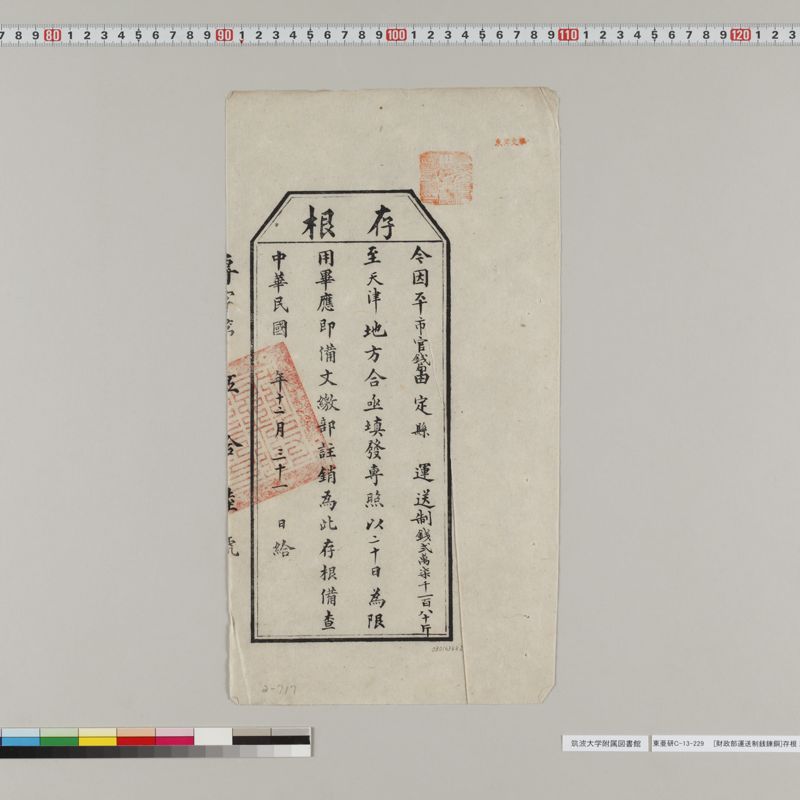 7 8 9 80 1 2 3 4 5 6 7 8 9 90 1 2 3 4 5 6 7 8 9 100 1 2 3 4 5 6 7 8 9 110 1 2 3 4 5 6 7 8 9 120 1 2 3
存根
令因平市官錢局由定縣 運送制錢弍萬柒千一百八十斤
至天津地方合亟填發專照以二十日為限
用畢應即備文繳部註銷為此存根備查
中華民國 年十二月三十一日給
專字第伍拾陸號
2-717
筑波大学附属図書館
東亜研C-13-229 [財政部運送制銭錬銅]存根